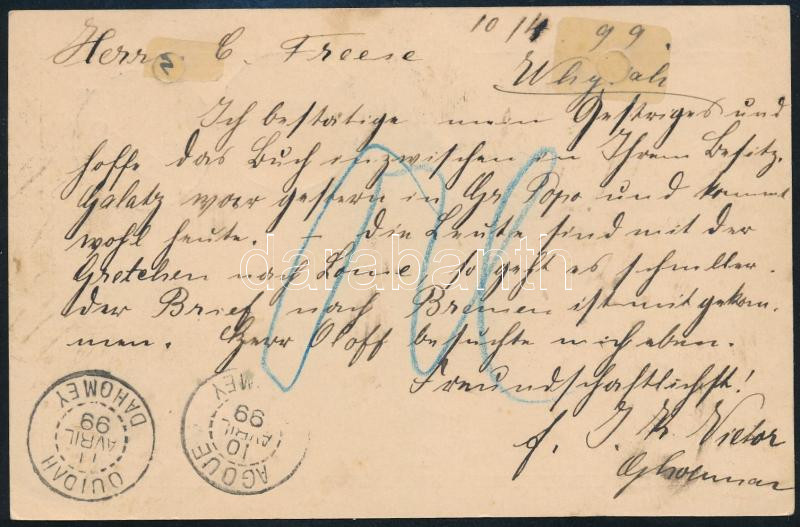 10/4 99.
Herrn C. Freese
Whydah
Ich bestätige mein Gestriges und
hoffe das Buch inzwischen in Ihrem Besitz.
Galatz war gestern in Gr. Popo und kommt
wohl heute. – Die Leute sind mit der
Gretchen nach Lome, so geht es schneller.
Der Brief nach Bremen ist mitgekom-
men. Herr Oloff besuchte mich eben.
Freundschaftlichst!
f. J. K. Vietor
OUIDAH
11
AVRIL
99
DAHOMEY
AGOUE
10
AVRIL
99
MEY
darabanth